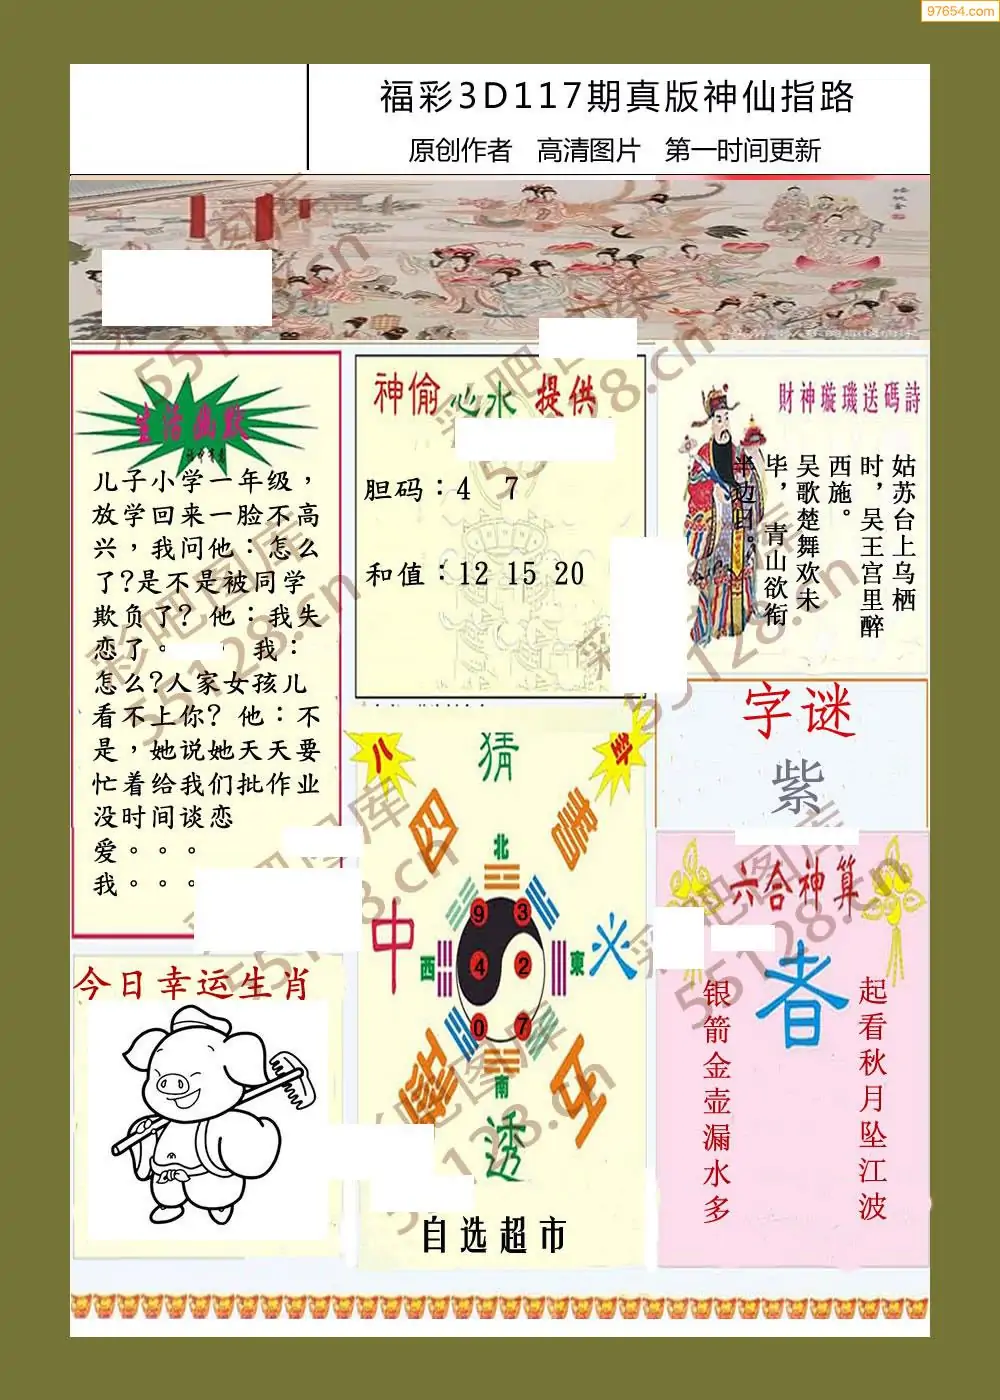 97654.com
福彩3D117期真版神仙指路
原创作者 高清图片 第一时间更新
生活幽默
儿子小学一年级，
放学回来一脸不高
兴，我问他：怎么
了?是不是被同学
欺负了? 他：我失
恋了。 我：
怎么?人家女孩儿
看不上你? 他：不
是，她说她天天要
忙着给我们批作业
没时间谈恋
爱。。。
我。。。
神偷 心水 提供
胆码：4 7
和值：12 15 20
財神璇璣送碼詩
姑苏台上乌栖
时，吴王宫里醉
西施。
吴歌楚舞欢未
毕，青山欲衔
半边日。
字谜
紫
八
猜
卦
北
中
西
9
3
4
2
0
7
東
火
南
透
自选超市
六合神算
者
起看秋月坠江波
银箭金壶漏水多
今日幸运生肖
彩吧图库
55128.cn